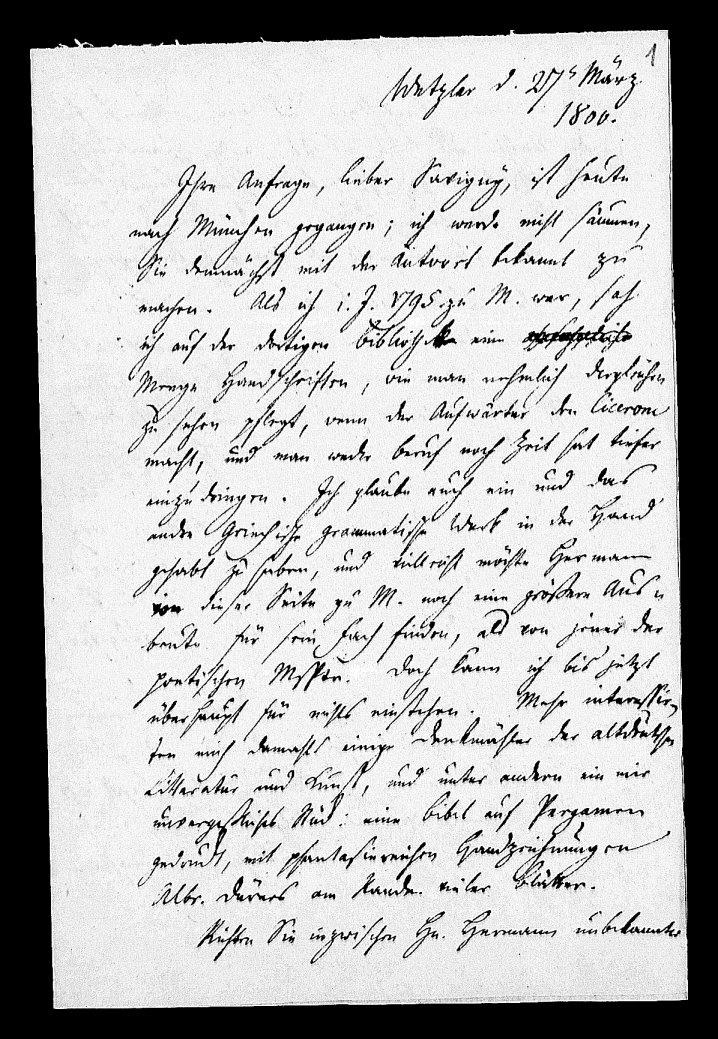 1
Wetzlar d. 27ˢ März
1800.
Ihre Anfrage, lieber Savigny, ist heute
nach München gegangen; ich werde nicht säumen,
Sie demnächst mit der Antwort bekannt zu
machen. Als ich i. J. 1795 zu M. war, sah
ich auf der dortigen Bibliothek eine
Menge Handschriften, wie man nehmlich dergleichen
zu sehen pflegt, wenn der Aufwärter den Cicerone
macht, und man weder Beruf noch Zeit hat tiefer
einzudringen. Ich glaube auch ein und das
andre Griechische grammatische Werk in der Hand
gehabt zu haben, und vielleicht möchte Hermann
von dieser Seite zu M. noch eine größere Aus-
beute für sein Fach finden, als von jener der
poetischen Mspte. Doch kann ich bis jetzt
überhaupt für nichts einstehen. Mehr interessir-
ten mich damahls einige Denkmähler der altdeutschen
Litteratur und Kunst, und unter andern ein mir
unvergeßliches Stück: eine Bibel auf Pergamen
gedruckt, mit phantasiereichen Handzeichnungen
Albr. Dürers am Rande vieler Blätter.
Richten Sie inzwischen Hn. Hermann unbekannter